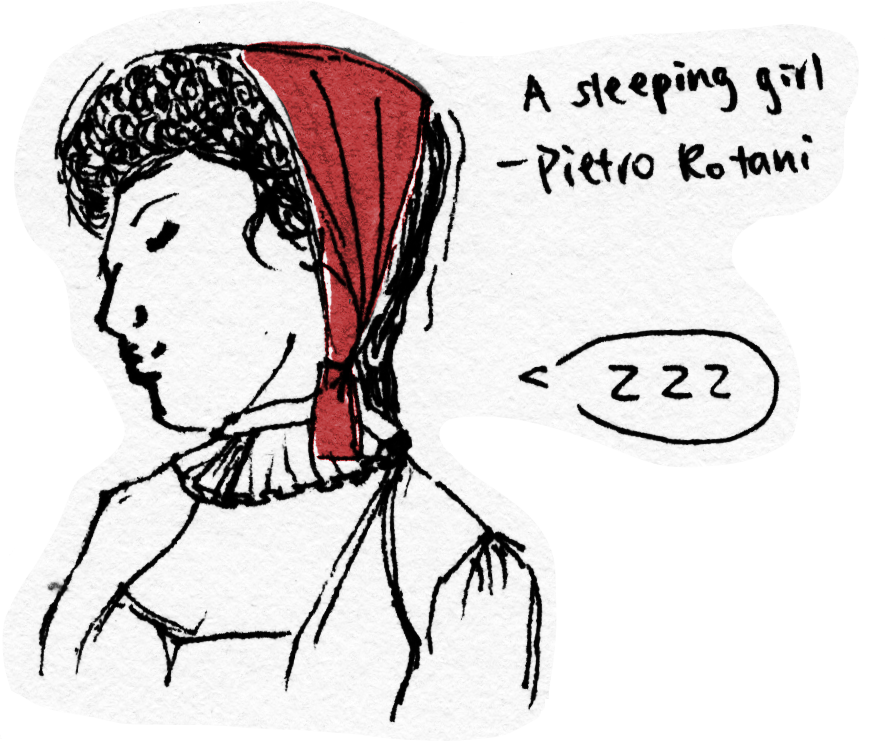 A sleeping girl
- Pietro Rotani
< ZZZ